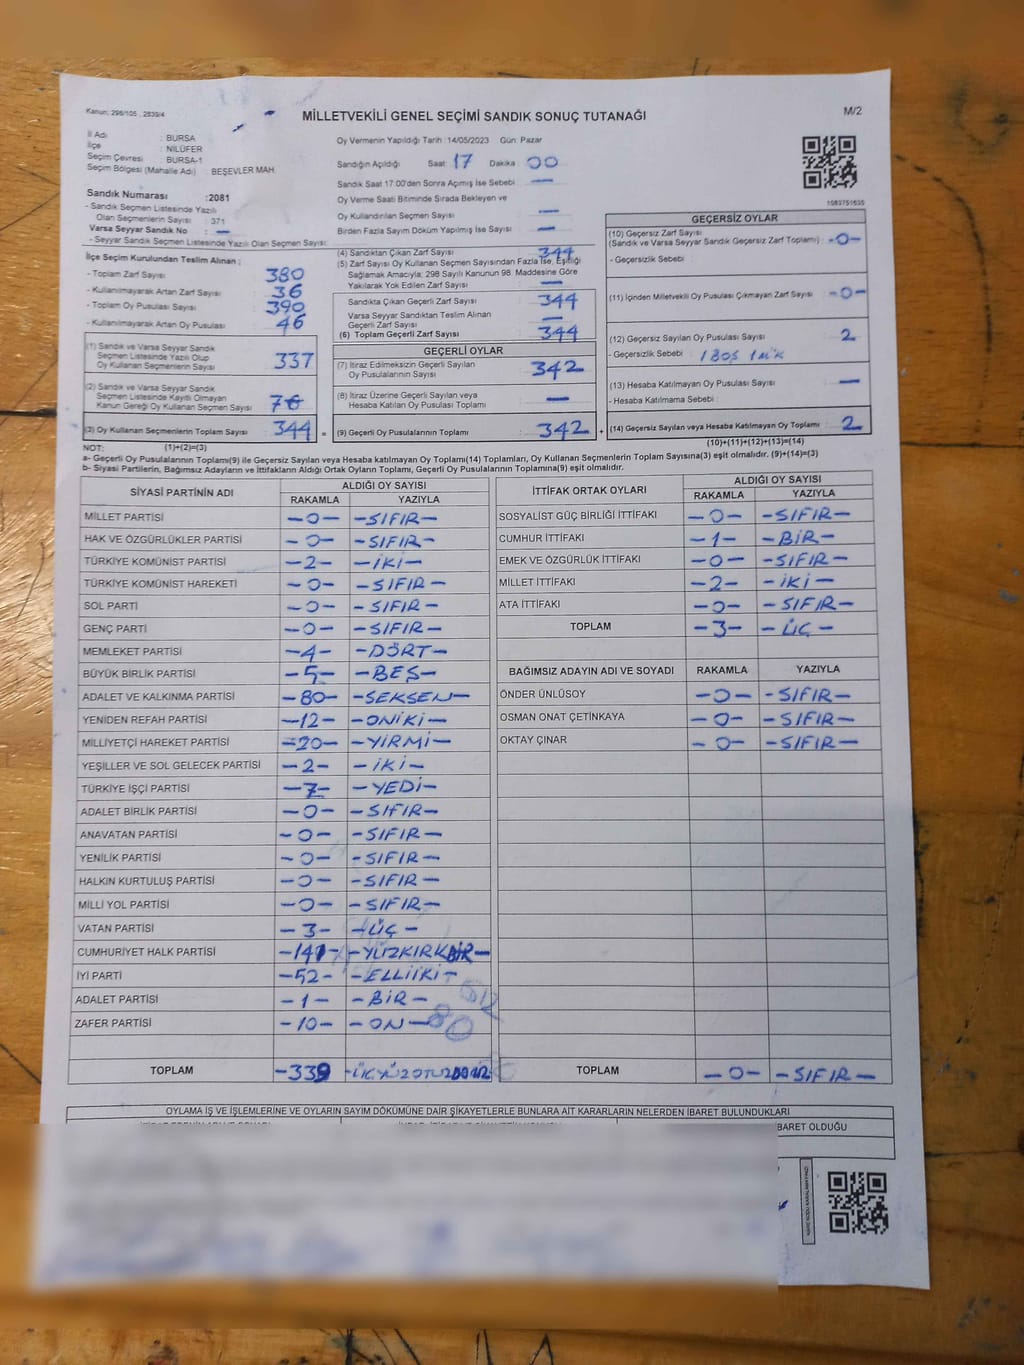 Kanun; 298/105 , 2839/4
MİLLETVEKİLİ GENEL SEÇİMİ SANDIK SONUÇ TUTANAĞI
M/2
İl Adı : BURSA
İlçe : NİLÜFER
Seçim Çevresi : BURSA-1
Seçim Bölgesi (Mahalle Adı) BEŞEVLER MAH.
Sandık Numarası :2081
- Sandık Seçmen Listesinde Yazılı
Olan Seçmenlerin Sayısı : 371
Varsa Seyyar Sandık No : —
- Seyyar Sandık Seçmen Listesinde Yazılı Olan Seçmen Sayısı:
İlçe Seçim Kurulundan Teslim Alınan ;
- Toplam Zarf Sayısı 380
- Kullanılmayarak Artan Zarf Sayısı 36
- Toplam Oy Pusulası Sayısı 390
- Kullanılmayarak Artan Oy Pusulası 46
(1) Sandık ve Varsa Seyyar Sandık
Seçmen Listesinde Yazılı Olup
Oy Kullanan Seçmen Sayısı 337
(2) Sandık ve Varsa Seyyar Sandık
Seçmen Listesinde Kayıtlı Olmayan
Kanun Gereği Oy Kullanan Seçmen Sayısı
(3) Oy Kullanan Seçmenlerin Toplam Sayısı 344
Oy Vermenin Yapıldığı Tarih :14/05/2023 Gün: Pazar
Sandığın Açıldığı Saat: 17 Dakika : 00
Sandık Saat 17:00'den Sonra Açılmış İse Sebebi : —
Oy Verme Saati Bitiminde Sırada Bekleyen ve
Oy Kullandırılan Seçmen Sayısı : —
Birden Fazla Sayım Döküm Yapılmış İse Sayısı : —
(4) Sandıktan Çıkan Zarf Sayısı 344
(5) Zarf Sayısı Oy Kullanan Seçmen Sayısından Fazla İse, Eşitliği
Sağlamak Amacıyla; 298 Sayılı Kanunun 98. Maddesine Göre
Yakılarak Yok Edilen Zarf Sayısı : —
Sandıkta Çıkan Geçerli Zarf Sayısı : 344
Varsa Seyyar Sandıktan Teslim Alınan
Geçerli Zarf Sayısı : —
(6) Toplam Geçerli Zarf Sayısı : 344
GEÇERLİ OYLAR
(7) İtiraz Edilmeksizin Geçerli Sayılan
Oy Pusulalarının Sayısı : 342
(8) İtiraz Üzerine Geçerli Sayılan veya
Hesaba Katılan Oy Pusulası Toplamı : —
= (9) Geçerli Oy Pusulalarının Toplamı : 342 +
1083751635
GEÇERSİZ OYLAR
(10) Geçersiz Zarf Sayısı
(Sandık ve Varsa Seyyar Sandık Geçersiz Zarf Toplamı) : -0-
- Geçersizlik Sebebi :
(11) İçinden Milletvekili Oy Pusulası Çıkmayan Zarf Sayısı : -0-
(12) Geçersiz Sayılan Oy Pusulası Sayısı : 2
- Geçersizlik Sebebi : 1 BOŞ
(13) Hesaba Katılmayan Oy Pusulası Sayısı : —
- Hesaba Katılmama Sebebi :
(14) Geçersiz Sayılan veya Hesaba Katılmayan Oy Toplamı : 2
NOT: (1)+(2)=(3) (10)+(11)+(12)+(13)=(14)
a- Geçerli Oy Pusulalarının Toplamı(9) ile Geçersiz Sayılan veya Hesaba Katılmayan Oy Toplamı(14) Toplamları, Oy Kullanan Seçmenlerin Toplam Sayısına(3) eşit olmalıdır. (9)+(14)=(3)
b- Siyasi Partilerin, Bağımsız Adayların ve İttifakların Aldığı Ortak Oyların Toplamı, Geçerli Oy Pusulalarının Toplamına(9) eşit olmalıdır.
SİYASİ PARTİNİN ADI ALDIĞI OY SAYISI
RAKAMLA YAZIYLA
MİLLET PARTİSİ -0- -SIFIR-
HAK VE ÖZGÜRLÜKLER PARTİSİ -0- -SIFIR-
TÜRKİYE KOMÜNİST PARTİSİ -2- -İKİ-
TÜRKİYE KOMÜNİST HAREKETİ -0- -SIFIR-
SOL PARTİ -0- -SIFIR-
GENÇ PARTİ -0- -SIFIR-
MEMLEKET PARTİSİ -4- -DÖRT-
BÜYÜK BİRLİK PARTİSİ -5- -BEŞ-
ADALET VE KALKINMA PARTİSİ -80- -SEKSEN-
YENİDEN REFAH PARTİSİ -12- -ONİKİ-
MİLLİYETÇİ HAREKET PARTİSİ -20- -YİRMİ-
YEŞİLLER VE SOL GELECEK PARTİSİ -2- -İKİ-
TÜRKİYE İŞÇİ PARTİSİ -7- -YEDİ-
ADALET BİRLİK PARTİSİ -0- -SIFIR-
ANAVATAN PARTİSİ -0- -SIFIR-
YENİLİK PARTİSİ -0- -SIFIR-
HALKIN KURTULUŞ PARTİSİ -0- -SIFIR-
MİLLİ YOL PARTİSİ -0- -SIFIR-
VATAN PARTİSİ -3- -ÜÇ-
CUMHURİYET HALK PARTİSİ -141- -YÜZKIRKBİR-
İYİ PARTİ -52- -ELLİİKİ-
ADALET PARTİSİ -1- -BİR-
ZAFER PARTİSİ -10- -ON-
TOPLAM -339
İTTİFAK ORTAK OYLARI ALDIĞI OY SAYISI
RAKAMLA YAZIYLA
SOSYALİST GÜÇ BİRLİĞİ İTTİFAKI -0- -SIFIR-
CUMHUR İTTİFAKI -1- -BİR-
EMEK VE ÖZGÜRLÜK İTTİFAKI -0- -SIFIR-
MİLLET İTTİFAKI -2- -İKİ-
ATA İTTİFAKI -0- -SIFIR-
TOPLAM -3- -ÜÇ-
BAĞIMSIZ ADAYIN ADI VE SOYADI RAKAMLA YAZIYLA
ÖNDER ÜNLÜSOY -0- -SIFIR-
OSMAN ONAT ÇETİNKAYA -0- -SIFIR-
OKTAY ÇINAR -0- -SIFIR-
TOPLAM -0- -SIFIR-
OYLAMA İŞ VE İŞLEMLERİNE VE OYLARIN SAYIM DÖKÜMÜNE DAİR ŞİKAYETLERLE BUNLARA AİT KARARLARIN NELERDEN İBARET BULUNDUKLARI
BARET OLDUĞU